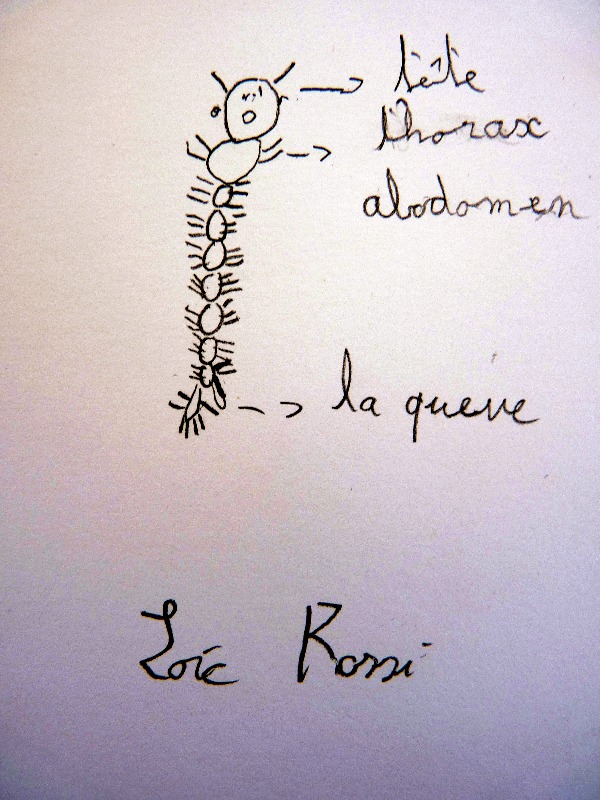 tête
thorax
abodomen
la queue
Loïc Rossi